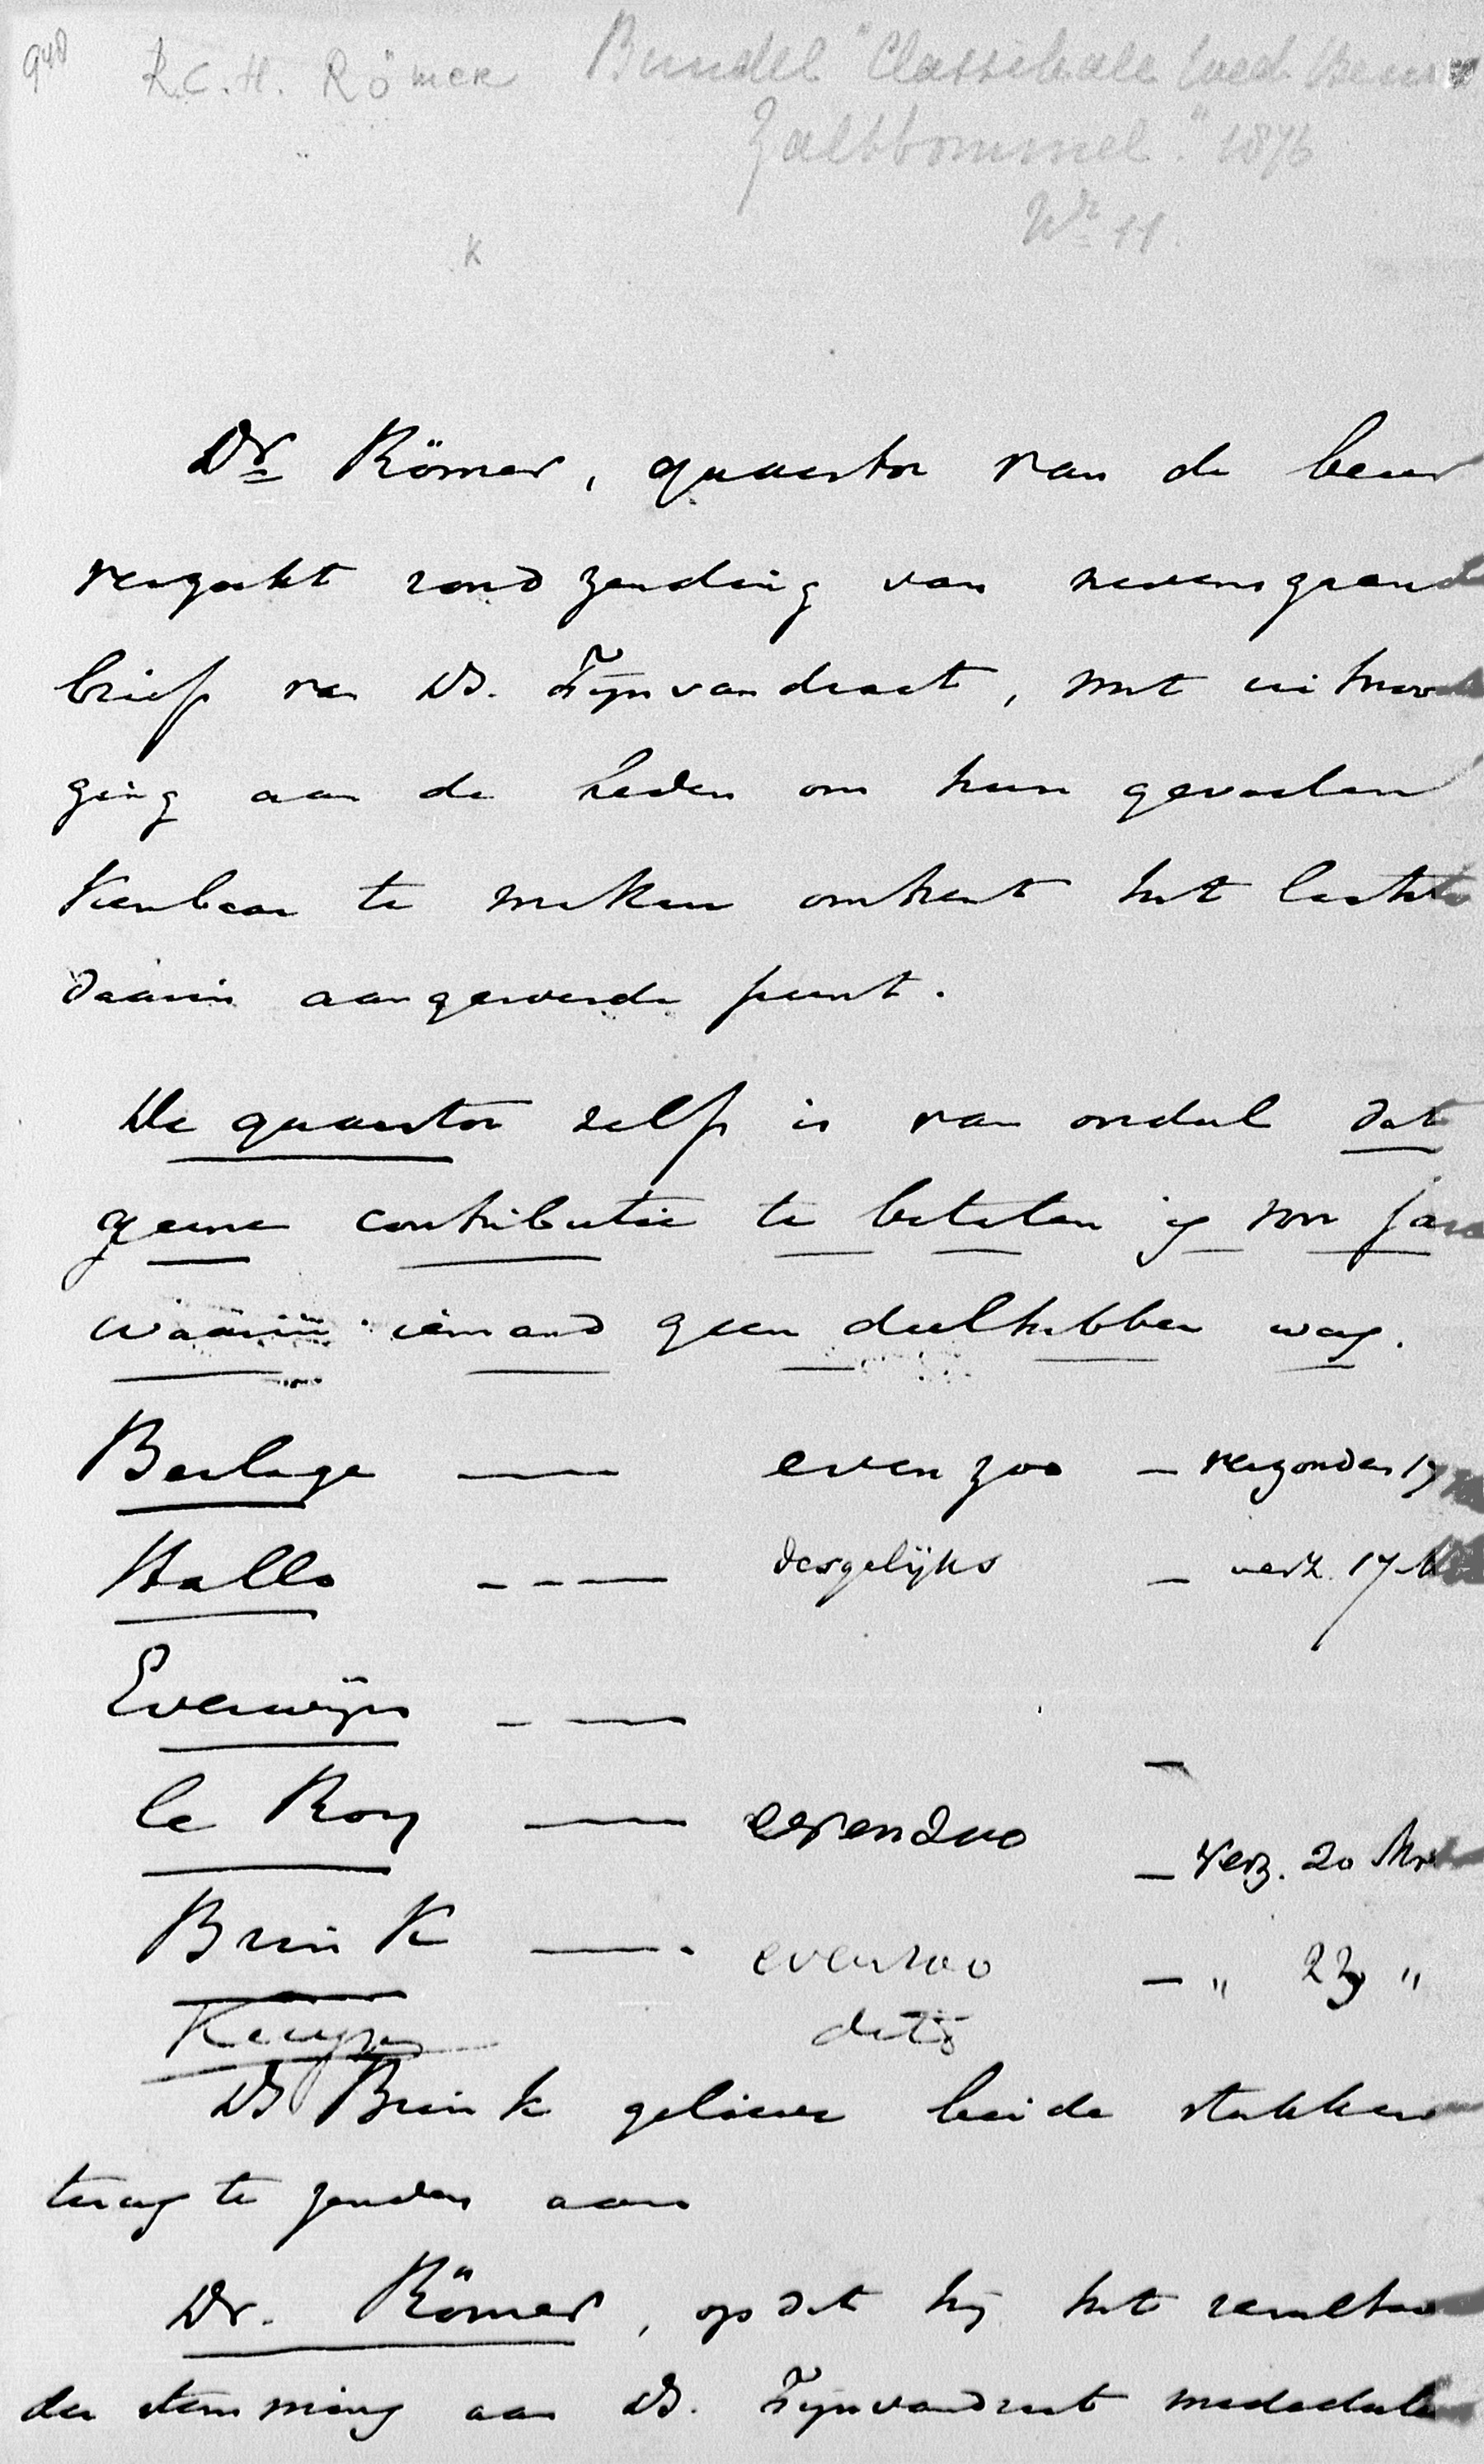 948 R.C.H. Römer Bundel "Classikale
Zaltbommel." 1876
No 11.
K
Dr Römer, quaestor van de beur
verzoekt rondzending van nevensgaand
brief van Ds. Fijnvandraat, met uitnoo
ging aan de Leden om hun gevoelen
kenbaar te maken omtrent het laatste
daarin aangeroerde punt.
De quaestor zelf is van oordeel dat
geene contributie te betalen is voor jaren
waarin iemand geen deelhebber was.
Berlage — evenzoo — verzonden 17
Hallo — desgelijks — verz. 17 M
Everwijn — —
le Roy — evenzoo — Verz. 20 Mrt
Brink — evenzoo — " 23 "
Kuyper dito
Ds Brink gelieve beide stukken
terug te zenden aan
Dr. Römer, opdat hij het resultaat
der stemming aan Ds. Fijnvandraat mededeele